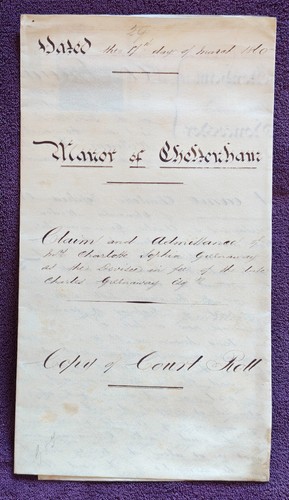 24
Dated the 17th day of March 1860
Manor of Cheltenham
Claim and Admittance of
Charlotte Sophia Greenaway
as the devisee in fee of the late
Charles Greenaway Esqre
Copy of Court Roll